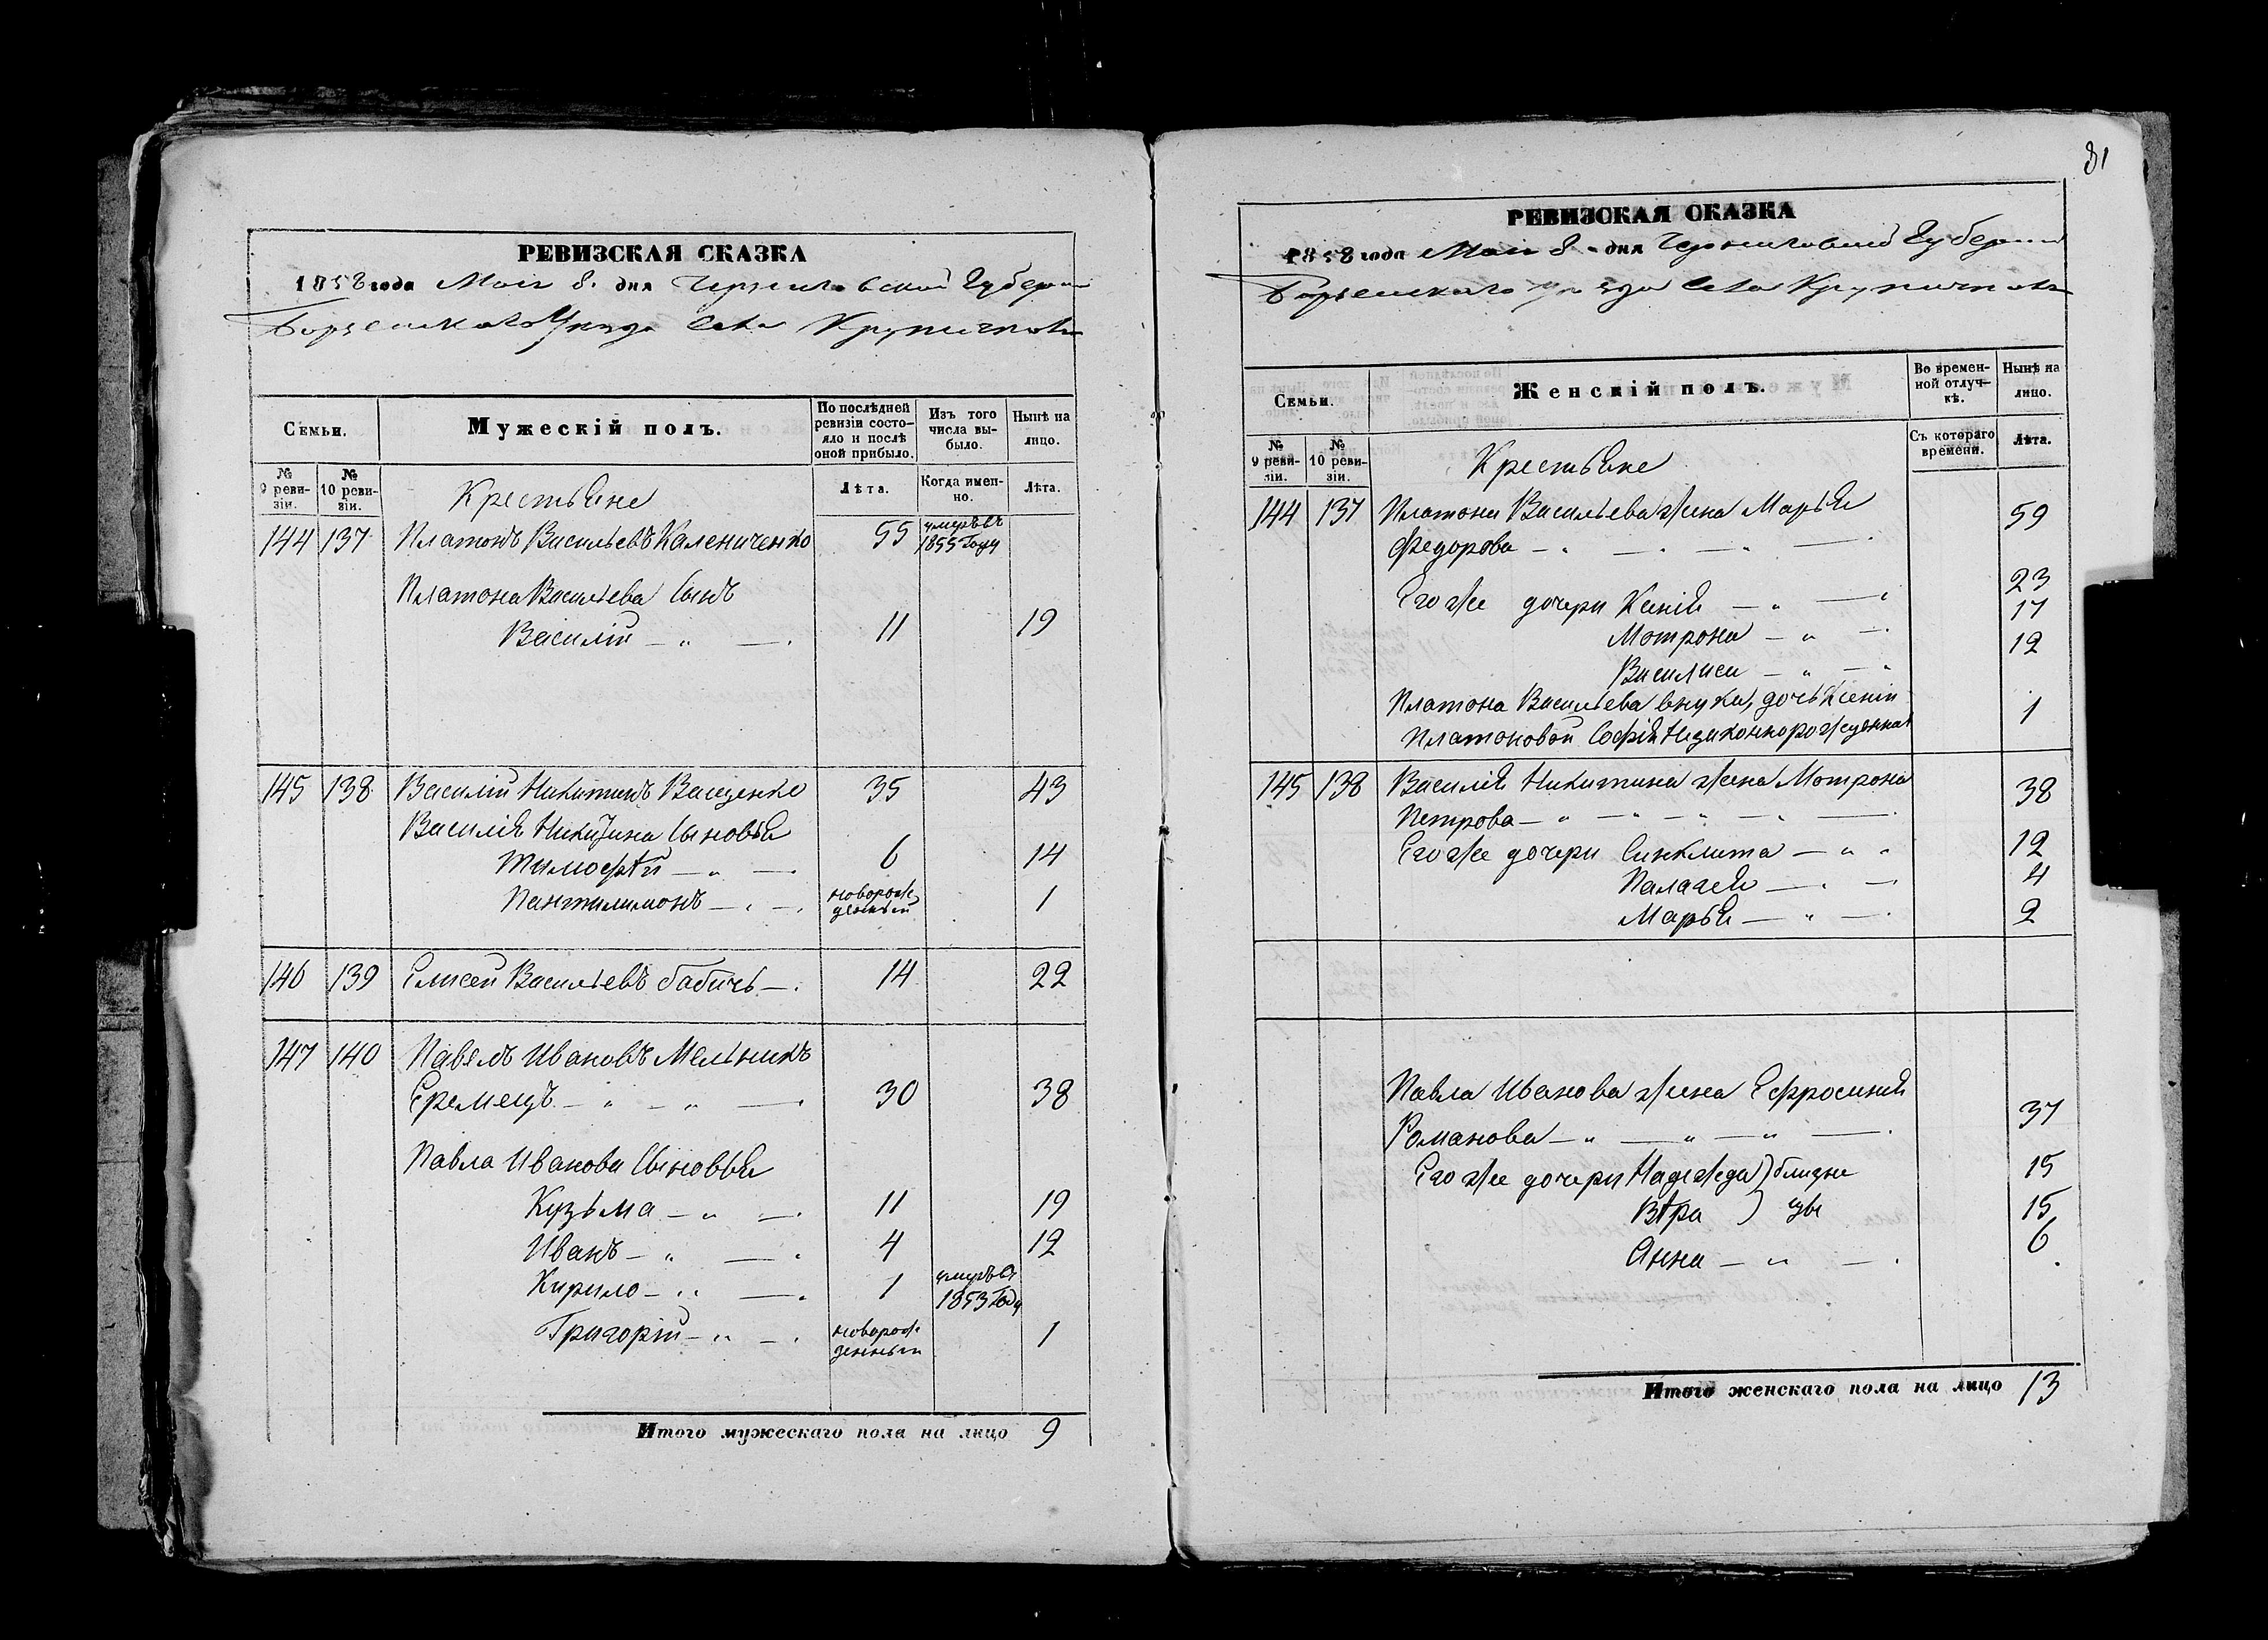 РЕВИЗСКАЯ СКАЗКА
1858 года Маія 8. дня Черниговской Губерніи
Борзенскаго Уѣзда Села Крупичполя
Семьи. Мужескій полъ. По послѣдней ревизіи состояло и послѣ оной прибыло. Изъ того числа выбыло. Нынѣ на лицо.
№ 9 ревизіи. № 10 ревизіи. Лѣта. Когда именно. Лѣта.
Крестьяне
144 137 Платонъ Васильевъ Калениченко 55 умръвъ 1855 году
Платона Васильева сынъ
Василій — „ — . 11 19
145 138 Василій Никитинъ Ващенко 35 43
Василія Никитина сыновья
Тимофѣй — „ — . 6 14
Пантилимонъ — . — . новорожденный 1
146 139 Елисей Васильевъ бабичъ — . 14 22
147 140 Павелъ Ивановъ Мельникъ
Еремецъ — „ — „ — 30 38
Павла Иванова сыновья
Кузьма — „ — . 11 19
Иванъ — „ — . 4 12
Кирило — „ — . 1 умръвъ 1853 году
Григорій — „ — . новорожденный 1
Итого мужескаго пола на лицо 9
81
РЕВИЗСКАЯ СКАЗКА
1858 года Маія 8 дня Черниговской Губерніи
Борзенскаго Уѣзда Села Крупичполя
Семьи. Женскій полъ. Во временной отлучкѣ. Нынѣ на лицо.
№ 9 ревизіи. № 10 ревизіи. Съ котораго времени. Лѣта.
Крестьяне
144 137 Платона Васильева жена Марья
Федорова — „ — . — „ — 59
Его же дочери Ксенія — „ — „ 23
Мотрона — „ — . 17
Василиса — „ — „ 12
Платона Васильева внука, дочь Ксеніи
Платоновой Софія Незаконнорожденная 1
145 138 Василія Никитина жена Мотрона
Петрова — „ — „ — „ — „ — . 38
Его же дочери Синклита — „ „ 12
Палагея — . — . 4
Марья — „ — . 2
Павла Иванова жена Ефросинія
Романова — „ — „ — „ — . 37
Его же дочери Надежда ) близне 15
Вѣра ) цы 15
Анна — „ — . 6
Итого женскаго пола на лицо 13